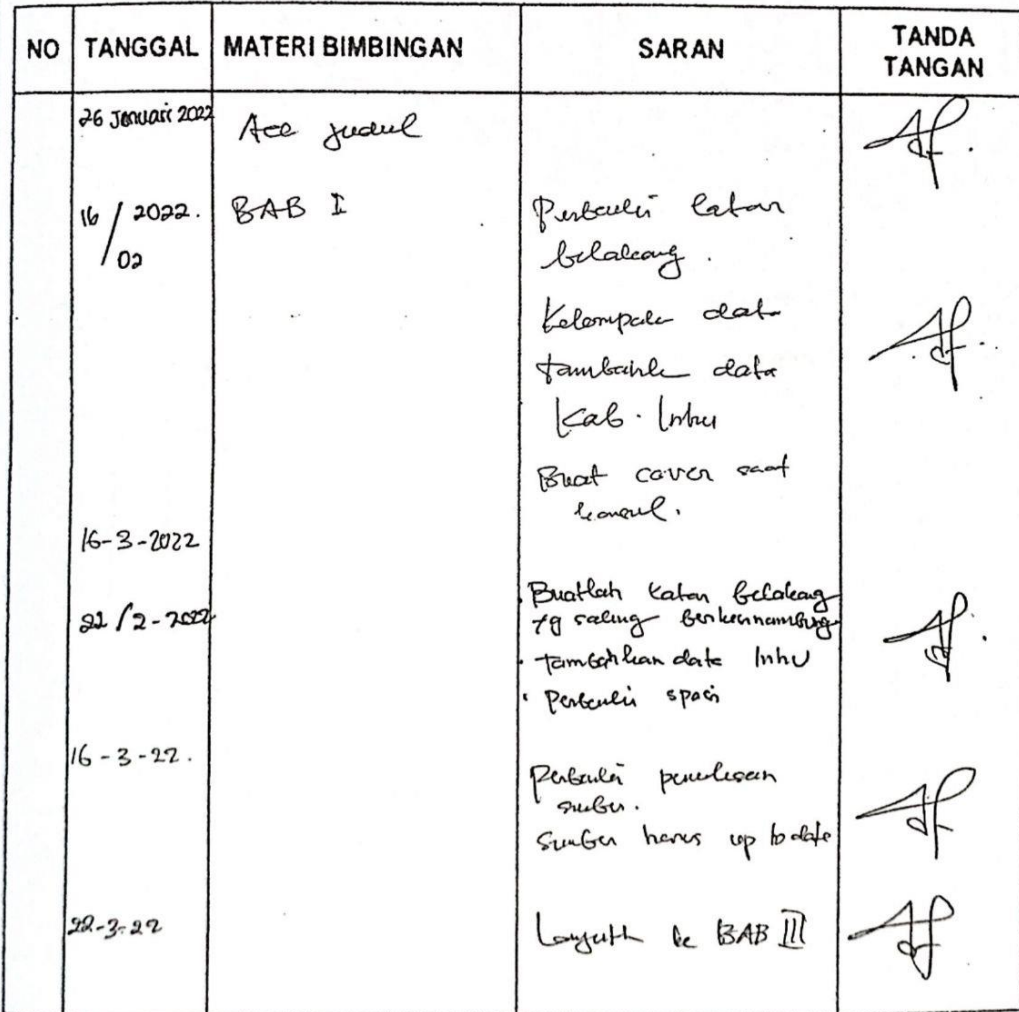 NO TANGGAL MATERI BIMBINGAN SARAN TANDA TANGAN
26 Januari 2022 Acc judul
16/02 2022. BAB I Perbaiki latar
belakang.
Kelompok data
tambahk data
Kab. Inhu
Buat cover saat
konsul.
16-3-2022
22/2-2022 Buatlah latar belakang
yg saling berkesinambung
tambahkan data Inhu
Perbaiki spasi
16-3-22. Perbaiki penulisan
sumber.
Sumber harus up to date
22-3-22 Lanjutk ke BAB III